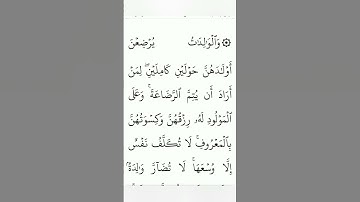 ۞ وَٱلۡوَٰلِدَٰتُ يُرۡضِعۡنَ
أَوۡلَٰدَهُنَّ حَوۡلَيۡنِ كَامِلَيۡنِۖ لِمَنۡ
أَرَادَ أَن يُتِمَّ ٱلرَّضَاعَةَۚ وَعَلَى
ٱلۡمَوۡلُودِ لَهُۥ رِزۡقُهُنَّ وَكِسۡوَتُهُنَّ
بِٱلۡمَعۡرُوفِۚ لَا تُكَلَّفُ نَفۡسٌ
إِلَّا وُسۡعَهَاۚ لَا تُضَآرَّ وَٰلِدَةُۢ